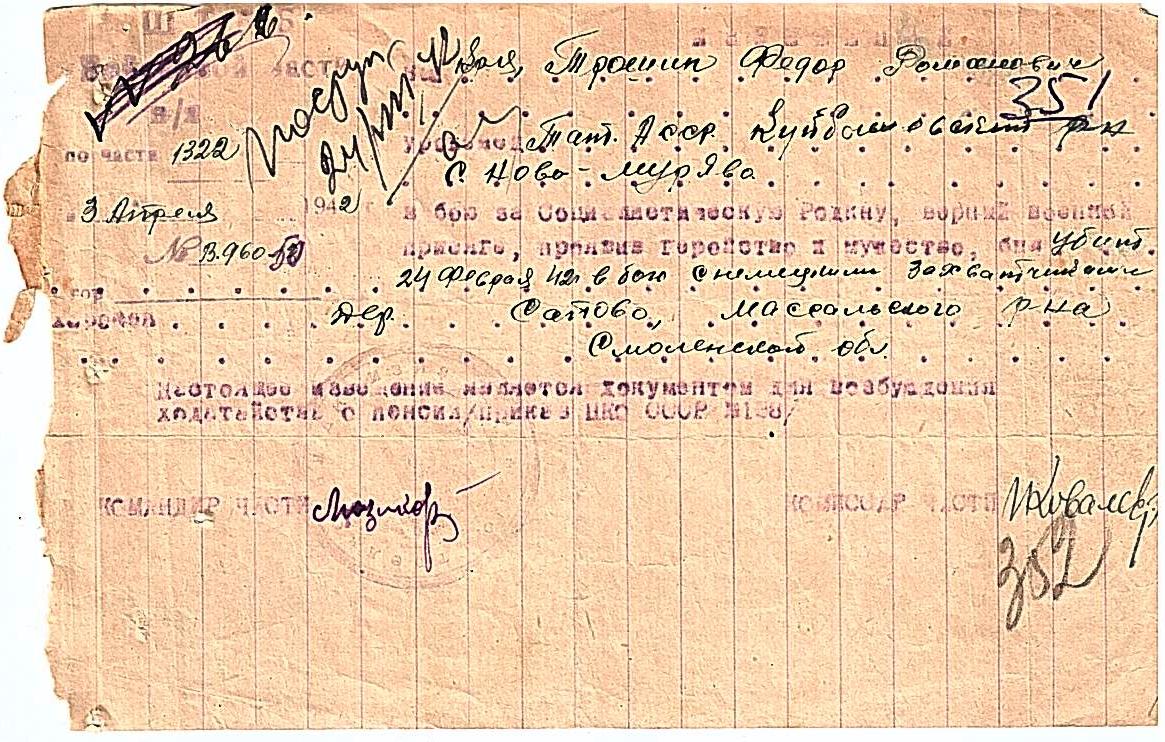 ШТАБ
Войсковой части
п/я
по части 1322
3 Апреля 1942 г
№ В.960
гор
ИЗВЕЩЕНИЕ
Трошин Федор Романович
351
Уроженец Тат. АССР Куйбышевский р-н
С. Ново-Мурява
в бою за Социалистическую Родину, верный военной
присяге, проявив геройство и мужество, был убит
24 Феврая 42 г. в бою с немецкими захватчиками
дер. Сапово, Массальского р-на
Смоленской обл.
Настоящее извещение является документом для возбуждения
ходатайства о пенсии/приказ НКО СССР №138/
КОМАНДИР ЧАСТИ
КОМИССАР ЧАСТИ
352